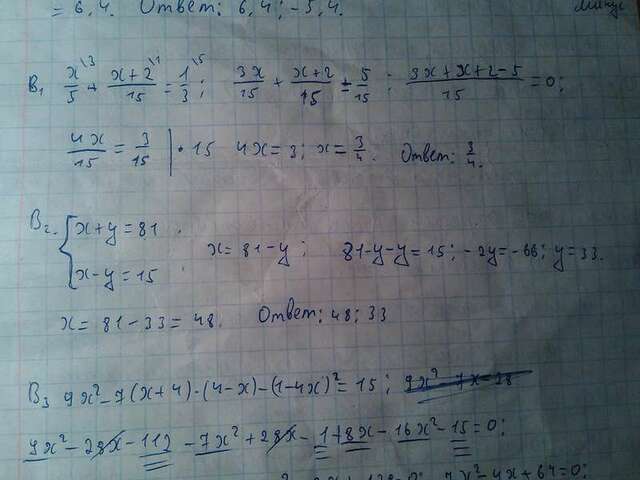 = 6,4. Ответ: 6,4; -5,4. минус
В₁ x\3/5 + x+2\1/15 = 1\5/3; 3x/15 + x+2/15 = 5/15; 3x+x+2-5/15 = 0;
4x/15 = 3/15 | · 15 4x = 3; x = 3/4. Ответ: 3/4.
В₂. { x+y = 81
x-y = 15; x = 81-y; 81-y-y = 15; -2y = -66; y = 33.
x = 81-33 = 48. Ответ: 48; 33
В₃ 9x²-7(x+4)·(4-x)-(1-4x)² = 15; 9x²-7x-28
9x²-28x-112-7x²+28x-1+8x-16x²-15=0;
7x²-4x+64=0;